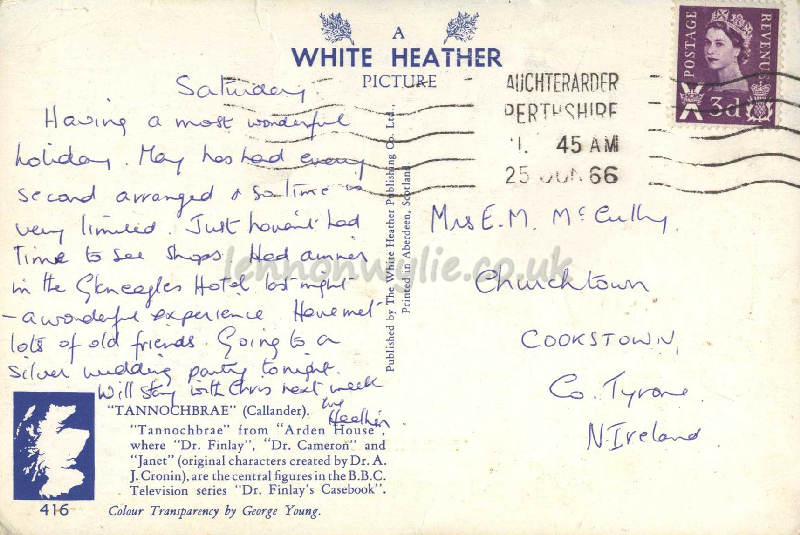 A
WHITE HEATHER
PICTURE
Saturday.
Having a most wonderful
holiday. May has had every
second arranged & so time is
very limited. Just haven't had
time to see shops. Had dinner
in the Gleneagles Hotel last night
- a wonderful experience Have met
lots of old friends. Going to a
silver wedding party tonight.
Will stay with Chris next week
Heather
"TANNOCHBRAE" (Callander).
"Tannochbrae" from "Arden House",
where "Dr. Finlay", "Dr. Cameron" and
"Janet" (original characters created by Dr. A.
J. Cronin), are the central figures in the B.B.C.
Television series "Dr. Finlay's Casebook".
416
Colour Transparency by George Young.
Published by The White Heather Publishing Co. Ltd.,
Printed in Aberdeen, Scotland
POSTAGE
REVENUE
3d
AUCHTERARDER
PERTHSHIRE
45 AM
25 JUN 66
Mrs E.M. McCully,
Churchtown
COOKSTOWN,
Co. Tyrone
N. Ireland.
lennonwylie.co.uk